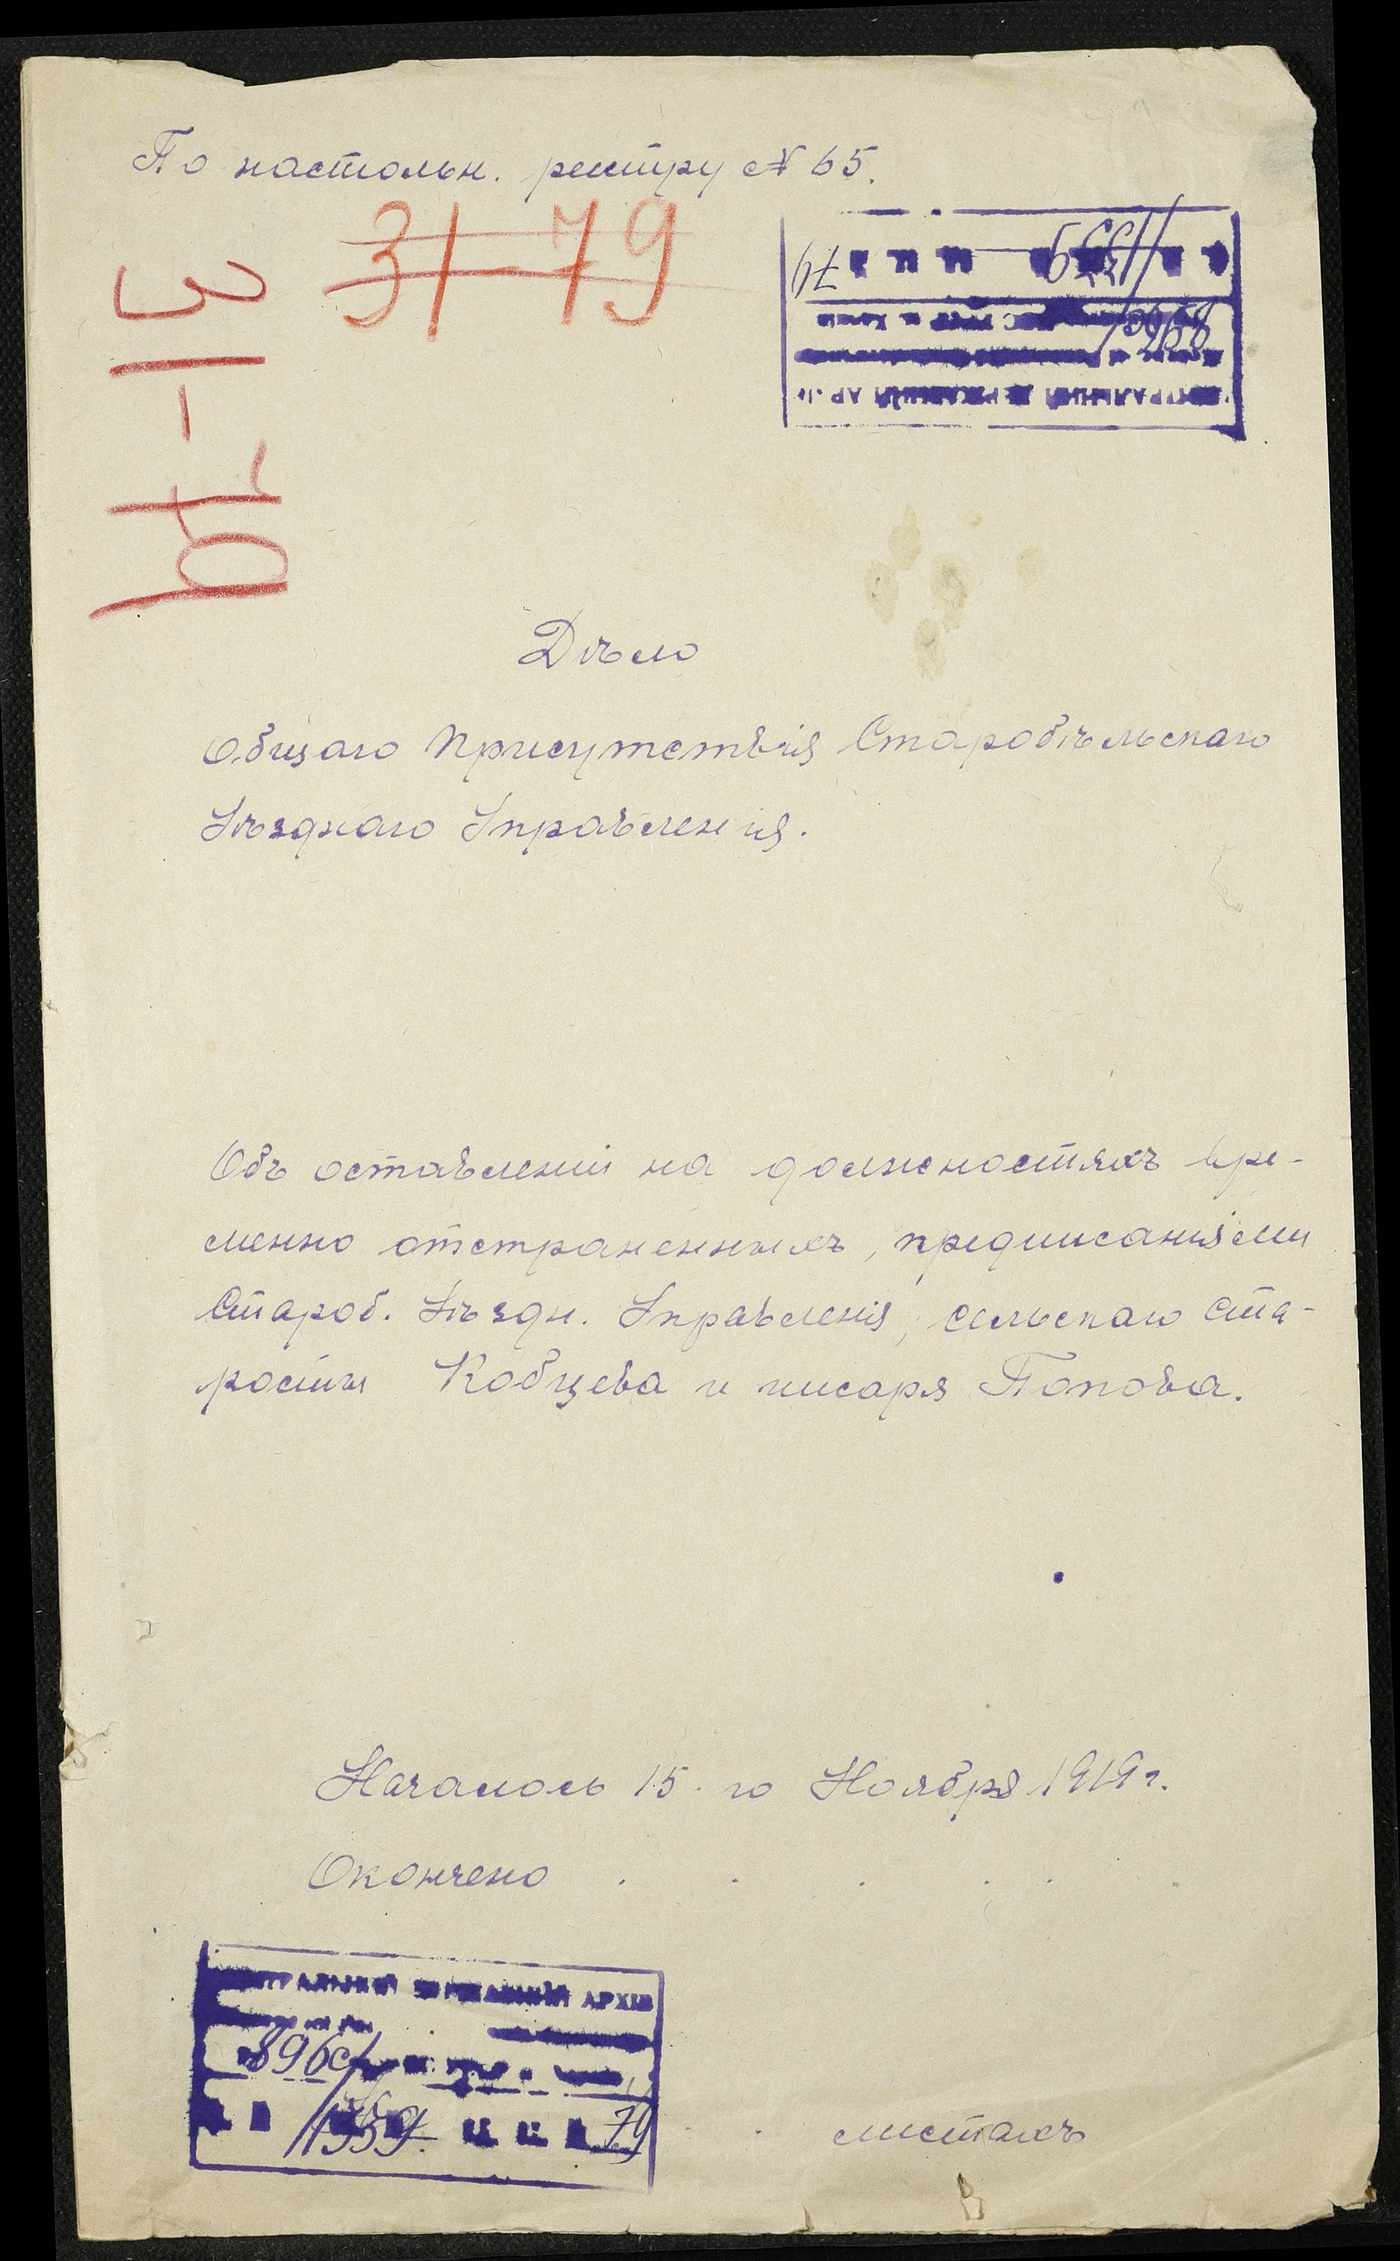 По настольн. реестру № 65.
31-79
Дѣло
Общаго Присутствія Старобѣльскаго
Уѣзднаго Управленія.
Объ оставленіи на должностяхъ вре-
менно отстраненныхъ, предписаніями
Староб. Уѣздн. Управленія, сельскаго ста-
росты Кобцева и писаря Попова.
Началось 15-го Ноября 1919 г.
Окончено
ЦЕНТРАЛЬНИЙ ДЕРЖАВНИЙ АРХІВ
79
листахъ